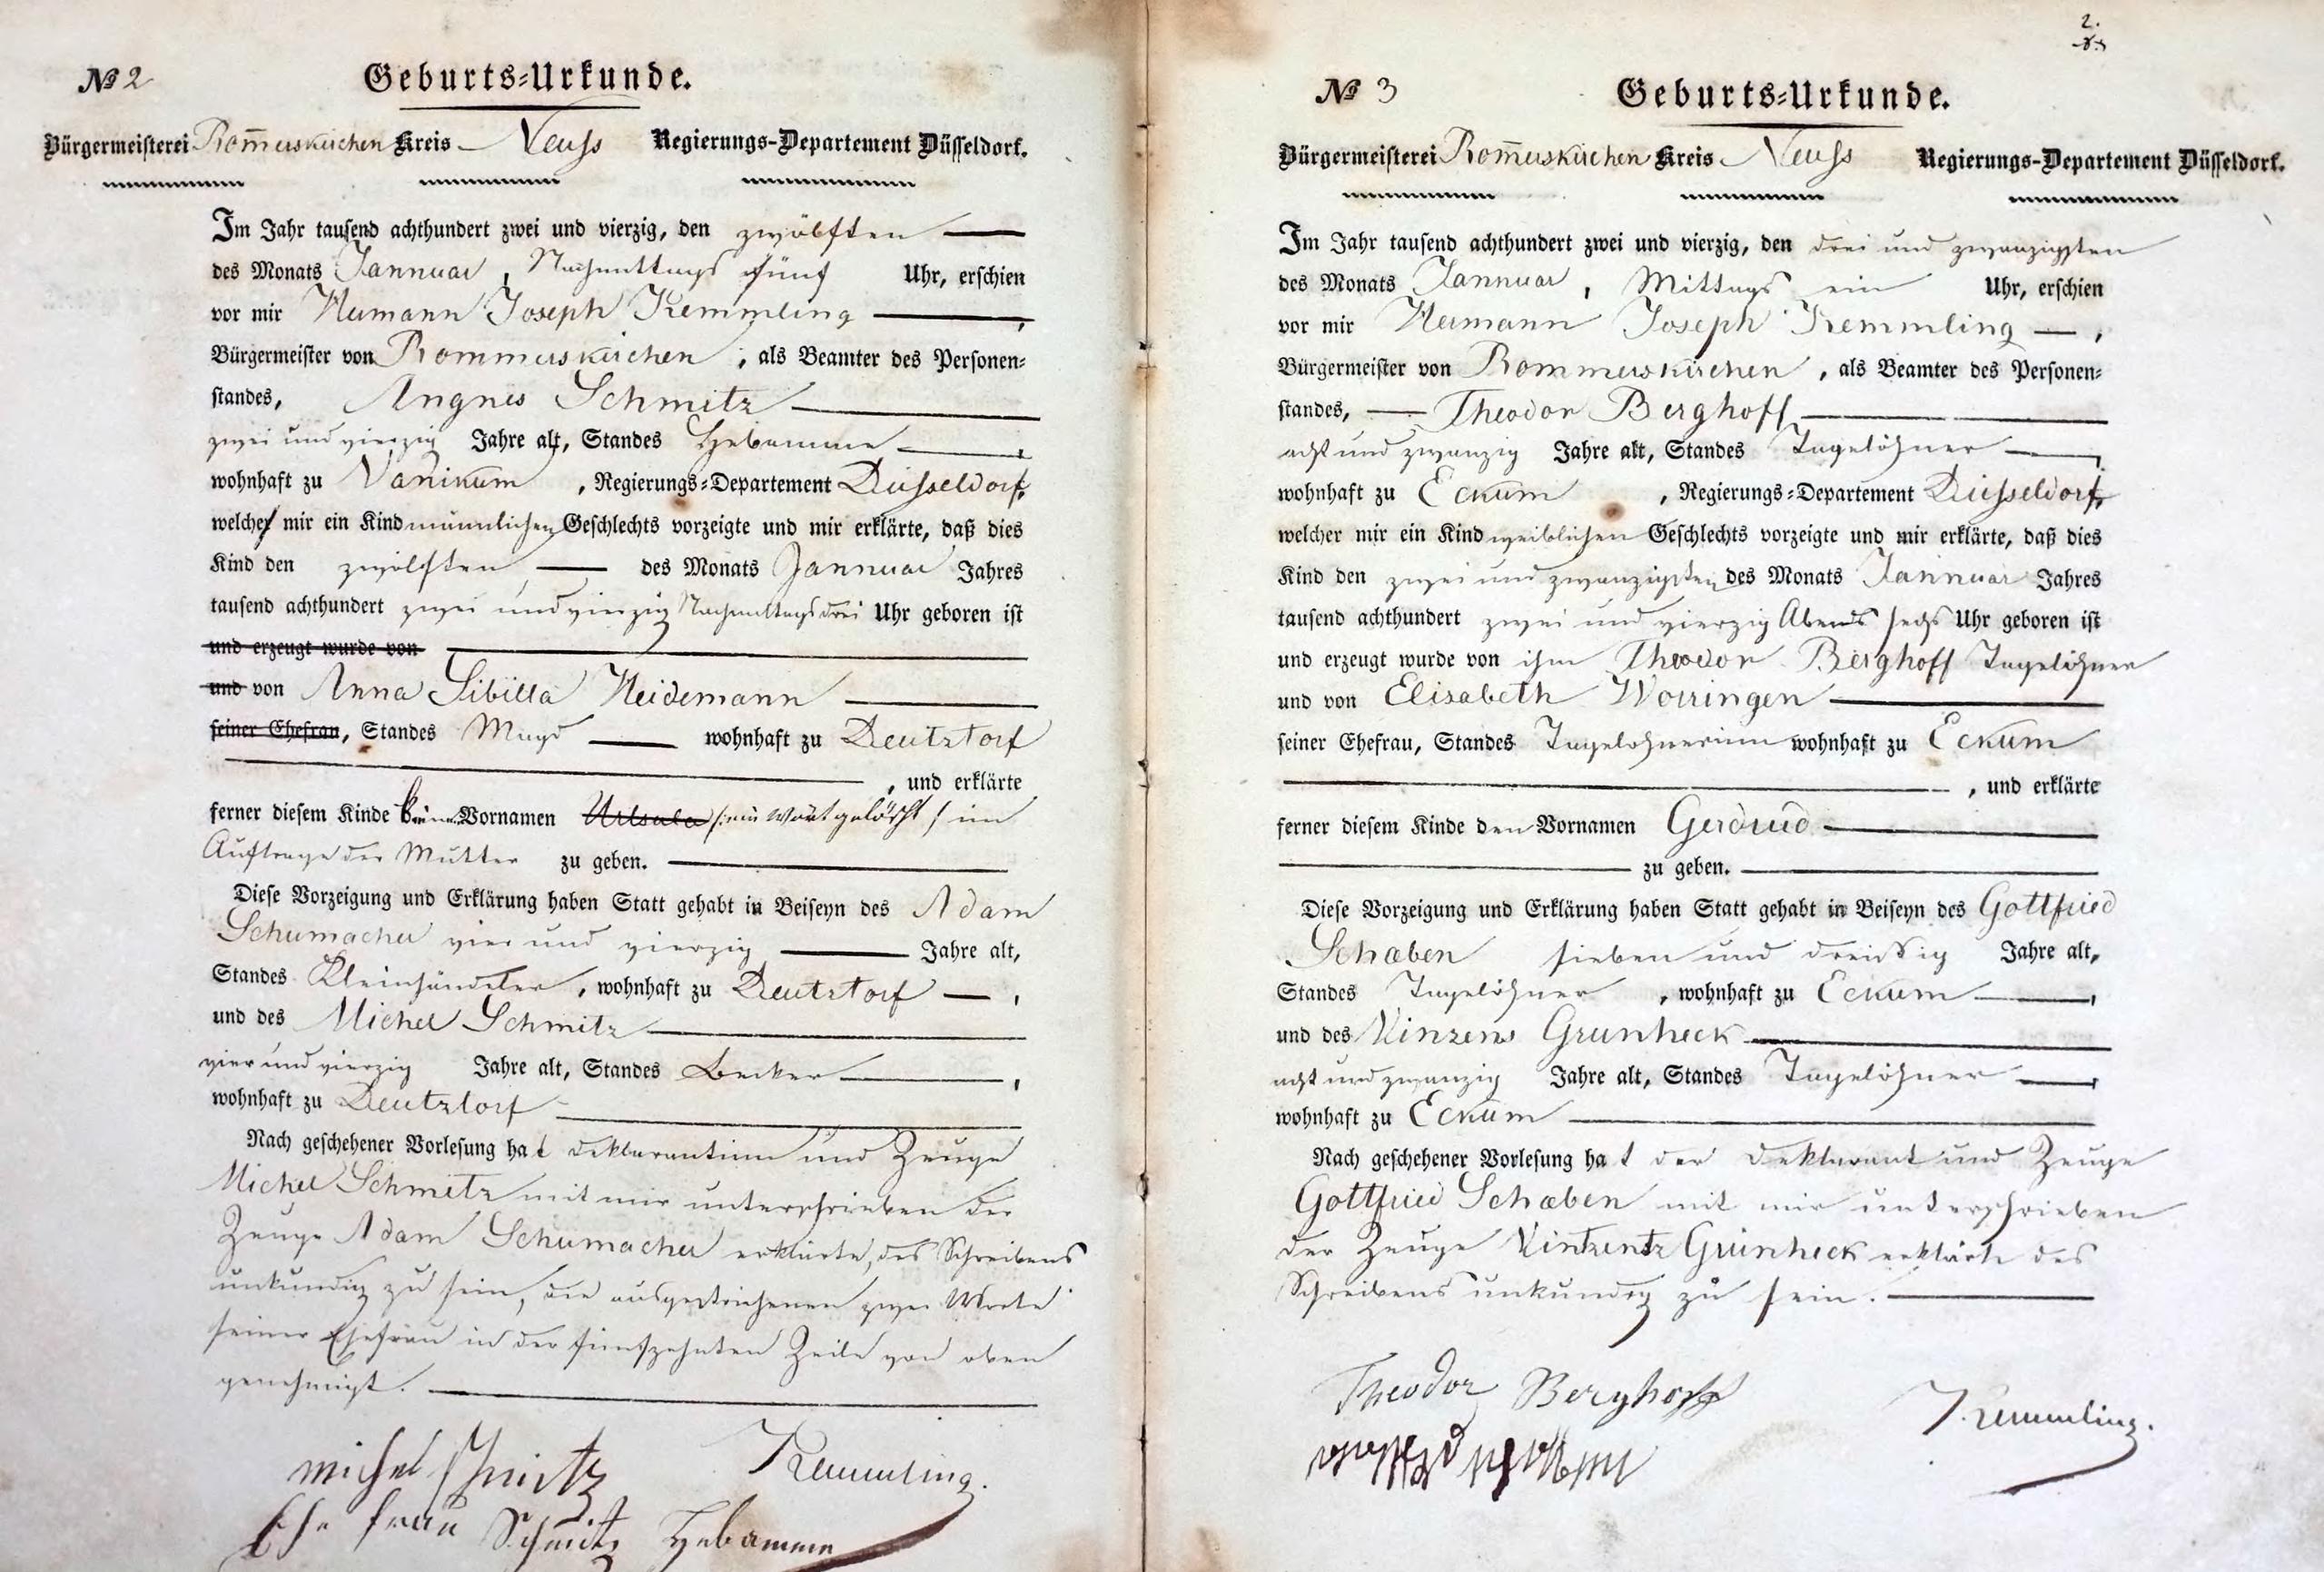 № 2
Geburts-Urkunde.
Bürgermeisterei Rom̅erskirchen Kreis Neuss Regierungs-Departement Düsseldorf.
Im Jahr tausend achthundert zwei und vierzig, den zwölften
des Monats Jannuar, Nachmittags fünf Uhr, erschien
vor mir Hermann Joseph Kemmling,
Bürgermeister von Rommerskirchen, als Beamter des Personen-
standes, Angnes Schmitz
zwei und vierzig Jahre alt, Standes Hebamme,
wohnhaft zu Vanikum, Regierungs-Departement Düsseldorf,
welche mir ein Kind männlichen Geschlechts vorzeigte und mir erklärte, daß dies
Kind den zwölften des Monats Jannuar Jahres
tausend achthundert zwei und vierzig Nachmittags drei Uhr geboren ist
und erzeugt wurde von
und von Anna Sibilla Heidemann
seiner Ehefrau, Standes Magd wohnhaft zu Deutztorf
, und erklärte
ferner diesem Kinde keine Vornamen Ursula /:ein Wort gelöscht/ im
Auftrage der Mutter zu geben.
Diese Vorzeigung und Erklärung haben Statt gehabt in Beiseyn des Adam
Schumacher vier und vierzig Jahre alt,
Standes Kleinhändeler, wohnhaft zu Deutztorf,
und des Michel Schmitz
vier und vierzig Jahre alt, Standes Becker,
wohnhaft zu Deutztorf
Nach geschehener Vorlesung hat Deklarantinn und Zeuge
Michel Schmitz mit mir unterschrieben der
Zeuge Adam Schumacher erklärte, des Schreibens
unkundig zu sein, die ausgestrichenen zwei Worte
seiner Ehefrau in der fünfzehnten Zeile von oben
genehmigt.
Michel Schmitz Kemmling.
Ehe frau Schmitz Hebamme
2.
№ 3
Geburts-Urkunde.
Bürgermeisterei Rom̅erskirchen Kreis Neuss Regierungs-Departement Düsseldorf.
Im Jahr tausend achthundert zwei und vierzig, den drei und zwanzigsten
des Monats Jannuar, Mittags ein Uhr, erschien
vor mir Hermann Joseph Kemmling,
Bürgermeister von Rommerskirchen, als Beamter des Personen-
standes, Theodor Berghoff
acht und zwanzig Jahre alt, Standes Tagelöhner,
wohnhaft zu Eckum, Regierungs-Departement Düsseldorf,
welcher mir ein Kind weiblichen Geschlechts vorzeigte und mir erklärte, daß dies
Kind den zwei und zwanzigsten des Monats Jannuar Jahres
tausend achthundert zwei und vierzig Abends sechs Uhr geboren ist
und erzeugt wurde von ihm Theodor Berghoff Tagelöhner
und von Elisabeth Worringen
seiner Ehefrau, Standes Tagelohnerinn wohnhaft zu Eckum
, und erklärte
ferner diesem Kinde den Vornamen Gerdrud
zu geben.
Diese Vorzeigung und Erklärung haben Statt gehabt in Beiseyn des Gottfried
Schaben sieben und dreißig Jahre alt,
Standes Tagelöhner, wohnhaft zu Eckum,
und des Vinzens Grunheck
acht und zwanzig Jahre alt, Standes Tagelöhner,
wohnhaft zu Eckum
Nach geschehener Vorlesung hat der Deklarant und Zeuge
Gottfried Schaben mit mir unterschrieben
der Zeuge Vintzentz Grünheck erklärte des
Schreibens unkundig zu sein.
Theodor Berghoff Kemmling.